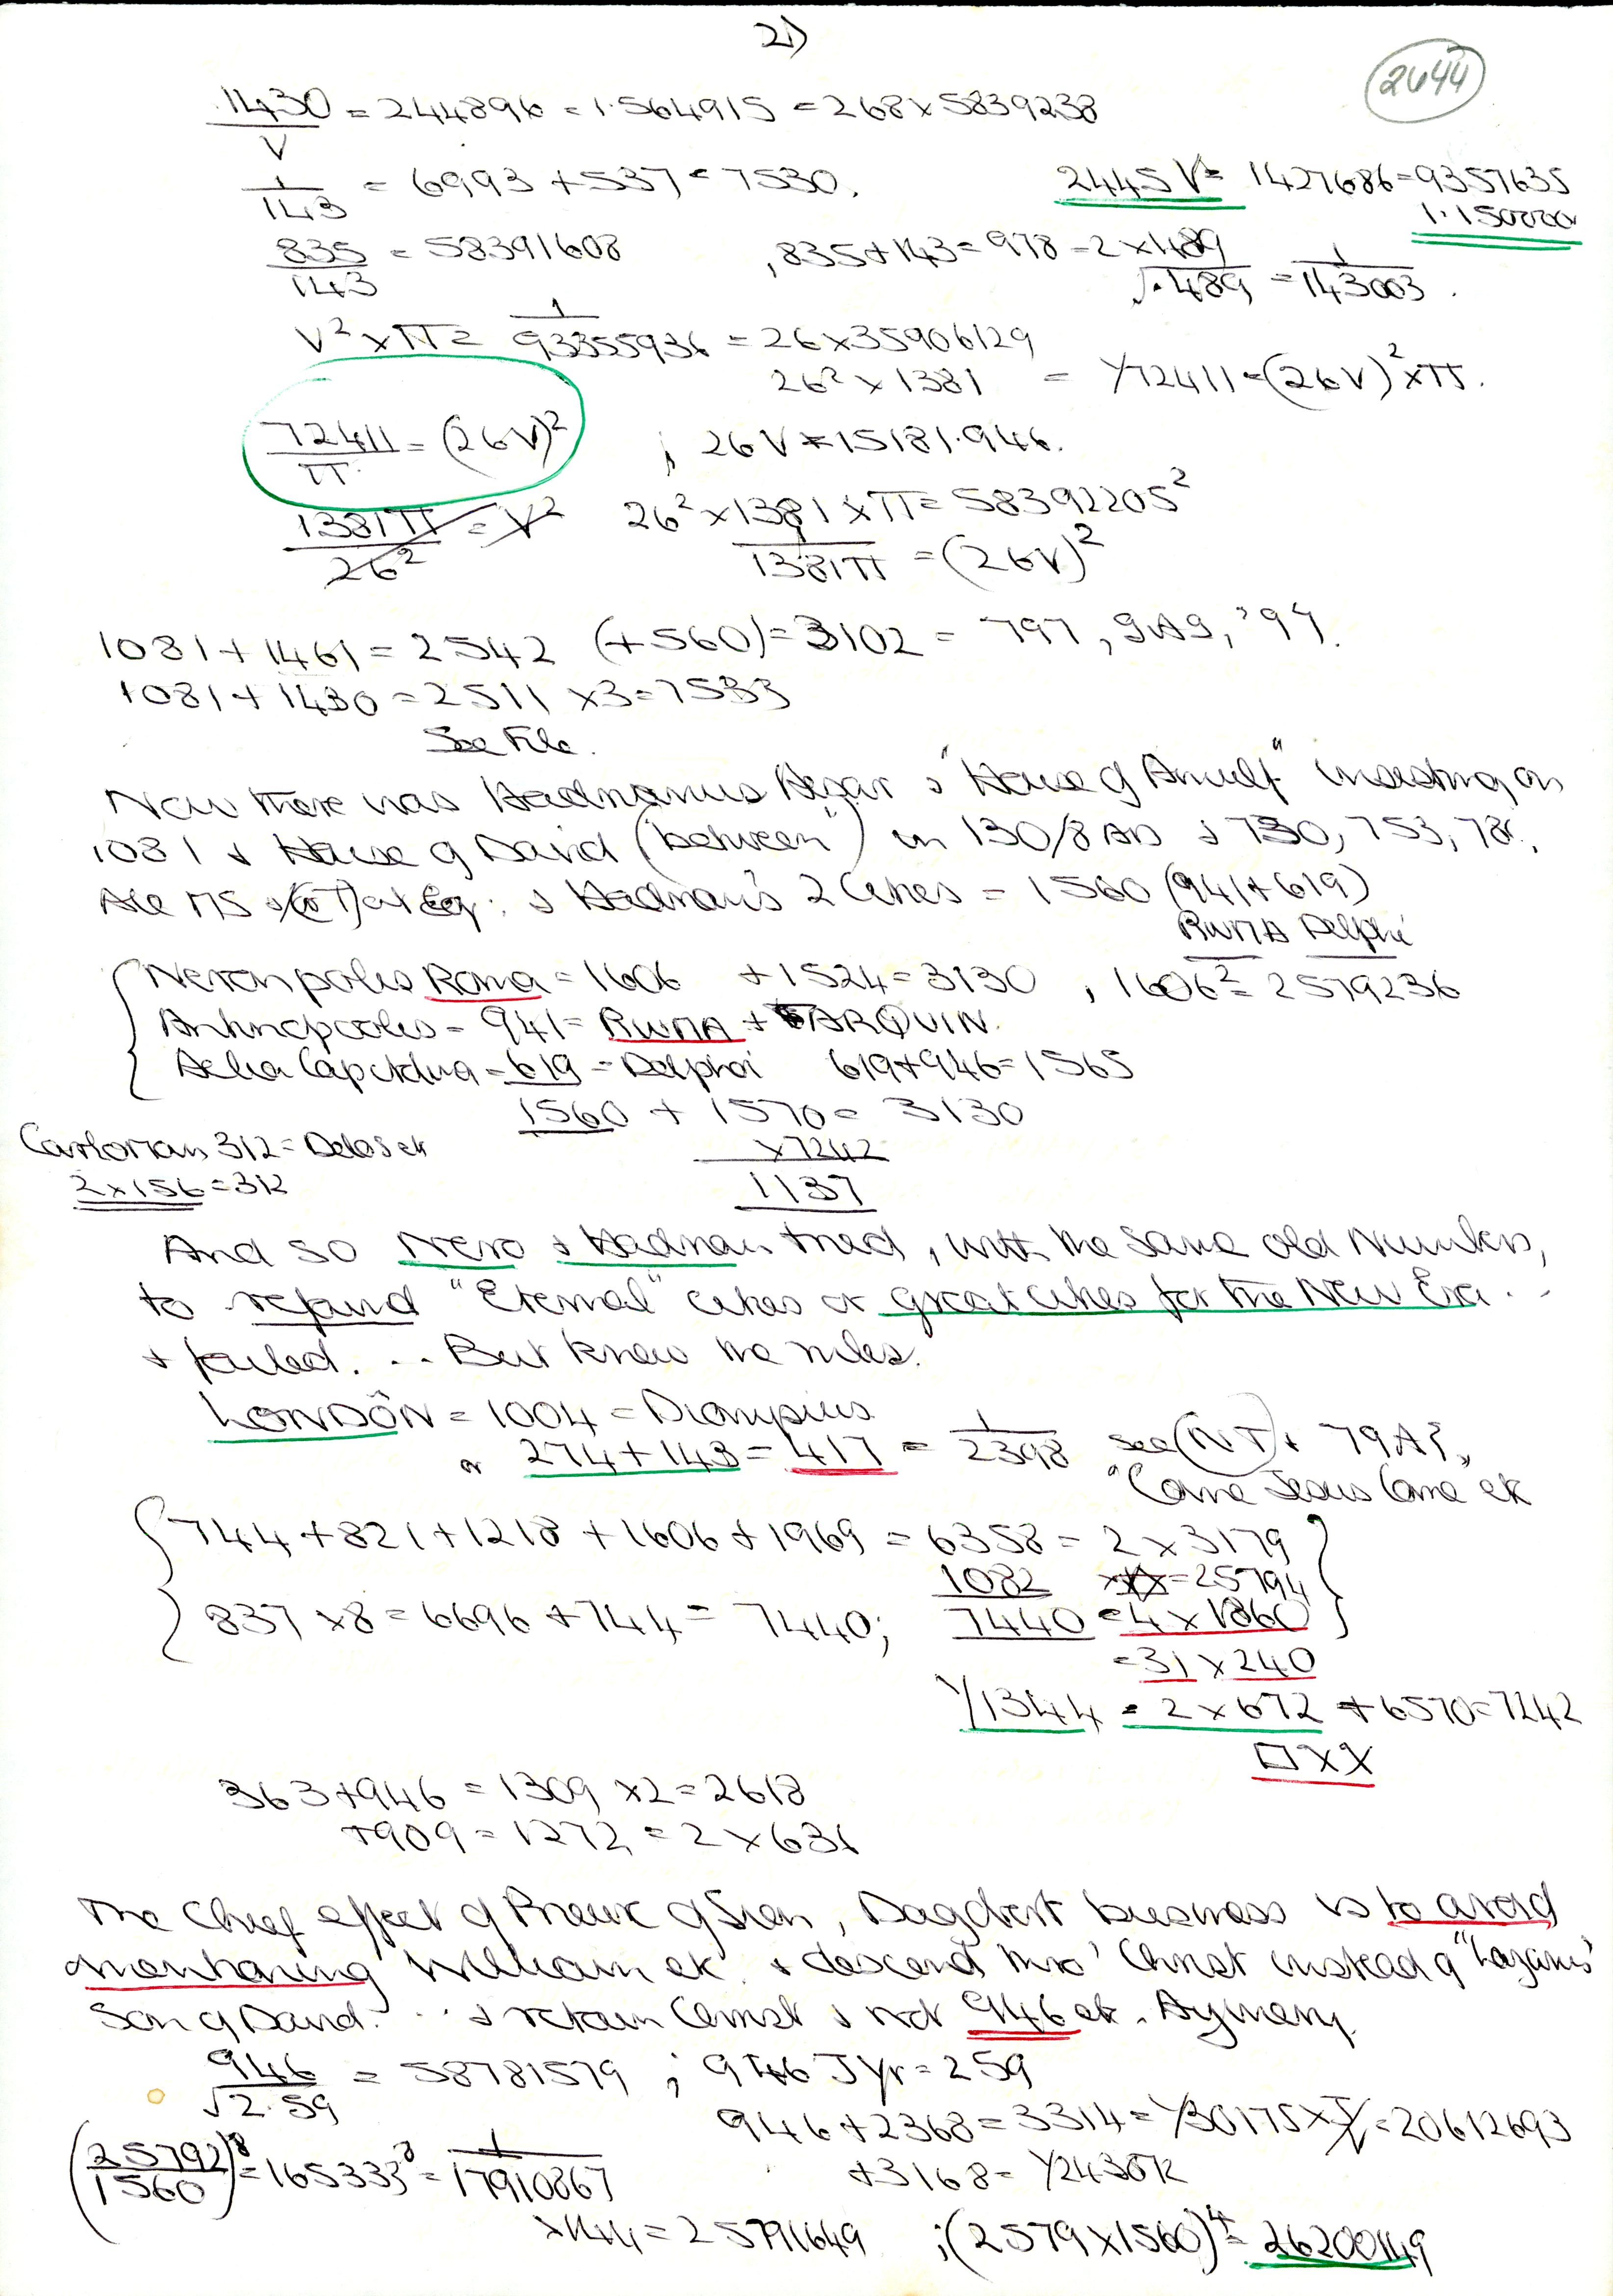 2)
2644
1430/V = 244896 = 1.564915 = 268 x 5839238
1/143 = 6993 + 537 = 7530.
2445V = 1427686 = 9357635
1.150000
835/143 = 58391608 , 835 + 143 = 978 = 2 x 489
√.489 = 1/143003 .
V² x π = 1/93355936 = 26 x 35906129
26² x 1381 = 1/72411 = (26V)² x π.
72411/π = (26V)² ; 26V = 15181.946.
1381π/26² = V² 26² x 1381 x π = 58392205²
1/1381π = (26V)²
1081 + 1461 = 2542 (+560) = 3102 = 797, 9A9, '94.
1081 + 1430 = 2511 x 3 = 7533
See File.
Now there was Hadrianus & "House of " insisting on
1081 & House of David (between") in 130/8 AD & 730, 753, 78 ,
& Hadrian's 2 Cities = 1560 (941 + 619)
RWMA Delphi
Neronpolis Roma = 1606 + 1524 = 3130 , 1606² = 2579236
Antinopoolis = 941 = RWMA + TARQUIN.
Aelia Capitolina = 619 = Delphoi 619 + 946 = 1565
1560 + 1570 = 3130
312 = Delos ek
x 7242
2 x 156 = 312
1137
And so Nero & Hadrian tried, with the same old Numbers,
to refound "Eternal" cities or great cities for the New Era . .
& failed. . . But knew the rules.
LONDÔN = 1004 = Dionysius
or 274 + 143 = 417 = 1/2398 see (NT) + 79A9,
"Come Jesus Come ek
744 + 821 + 1218 + 1606 + 1969 = 6358 = 2 x 3179
1082 = 25794
837 x 8 = 6696 + 744 = 7440; 7440 = 4 x 1860
= 31 x 240
1/1344 = 2 x 672 + 6570 = 7242
□XX
363 + 946 = 1309 x 2 = 2618
+ 909 = 1272 = 2 x 636
The Chief effect of Prieure of Sion, Dagobert business is to avoid
mentioning William ek. & descend thro' Christ instead of "Lazarus'
Son of David. . . & retain Christ & not 946 ek. Aymery.
946/√2.59 = 58781579 ; 946 J Yr = 259
946 + 2368 = 3314 = 1/30175 x = 20612693
(25792/1560)⁸ = 165333⁸ = 1/17910867 + 3168 = 1/24305
x 144 = 25791649 ; (2579 x 1560)⁴ = 26200149